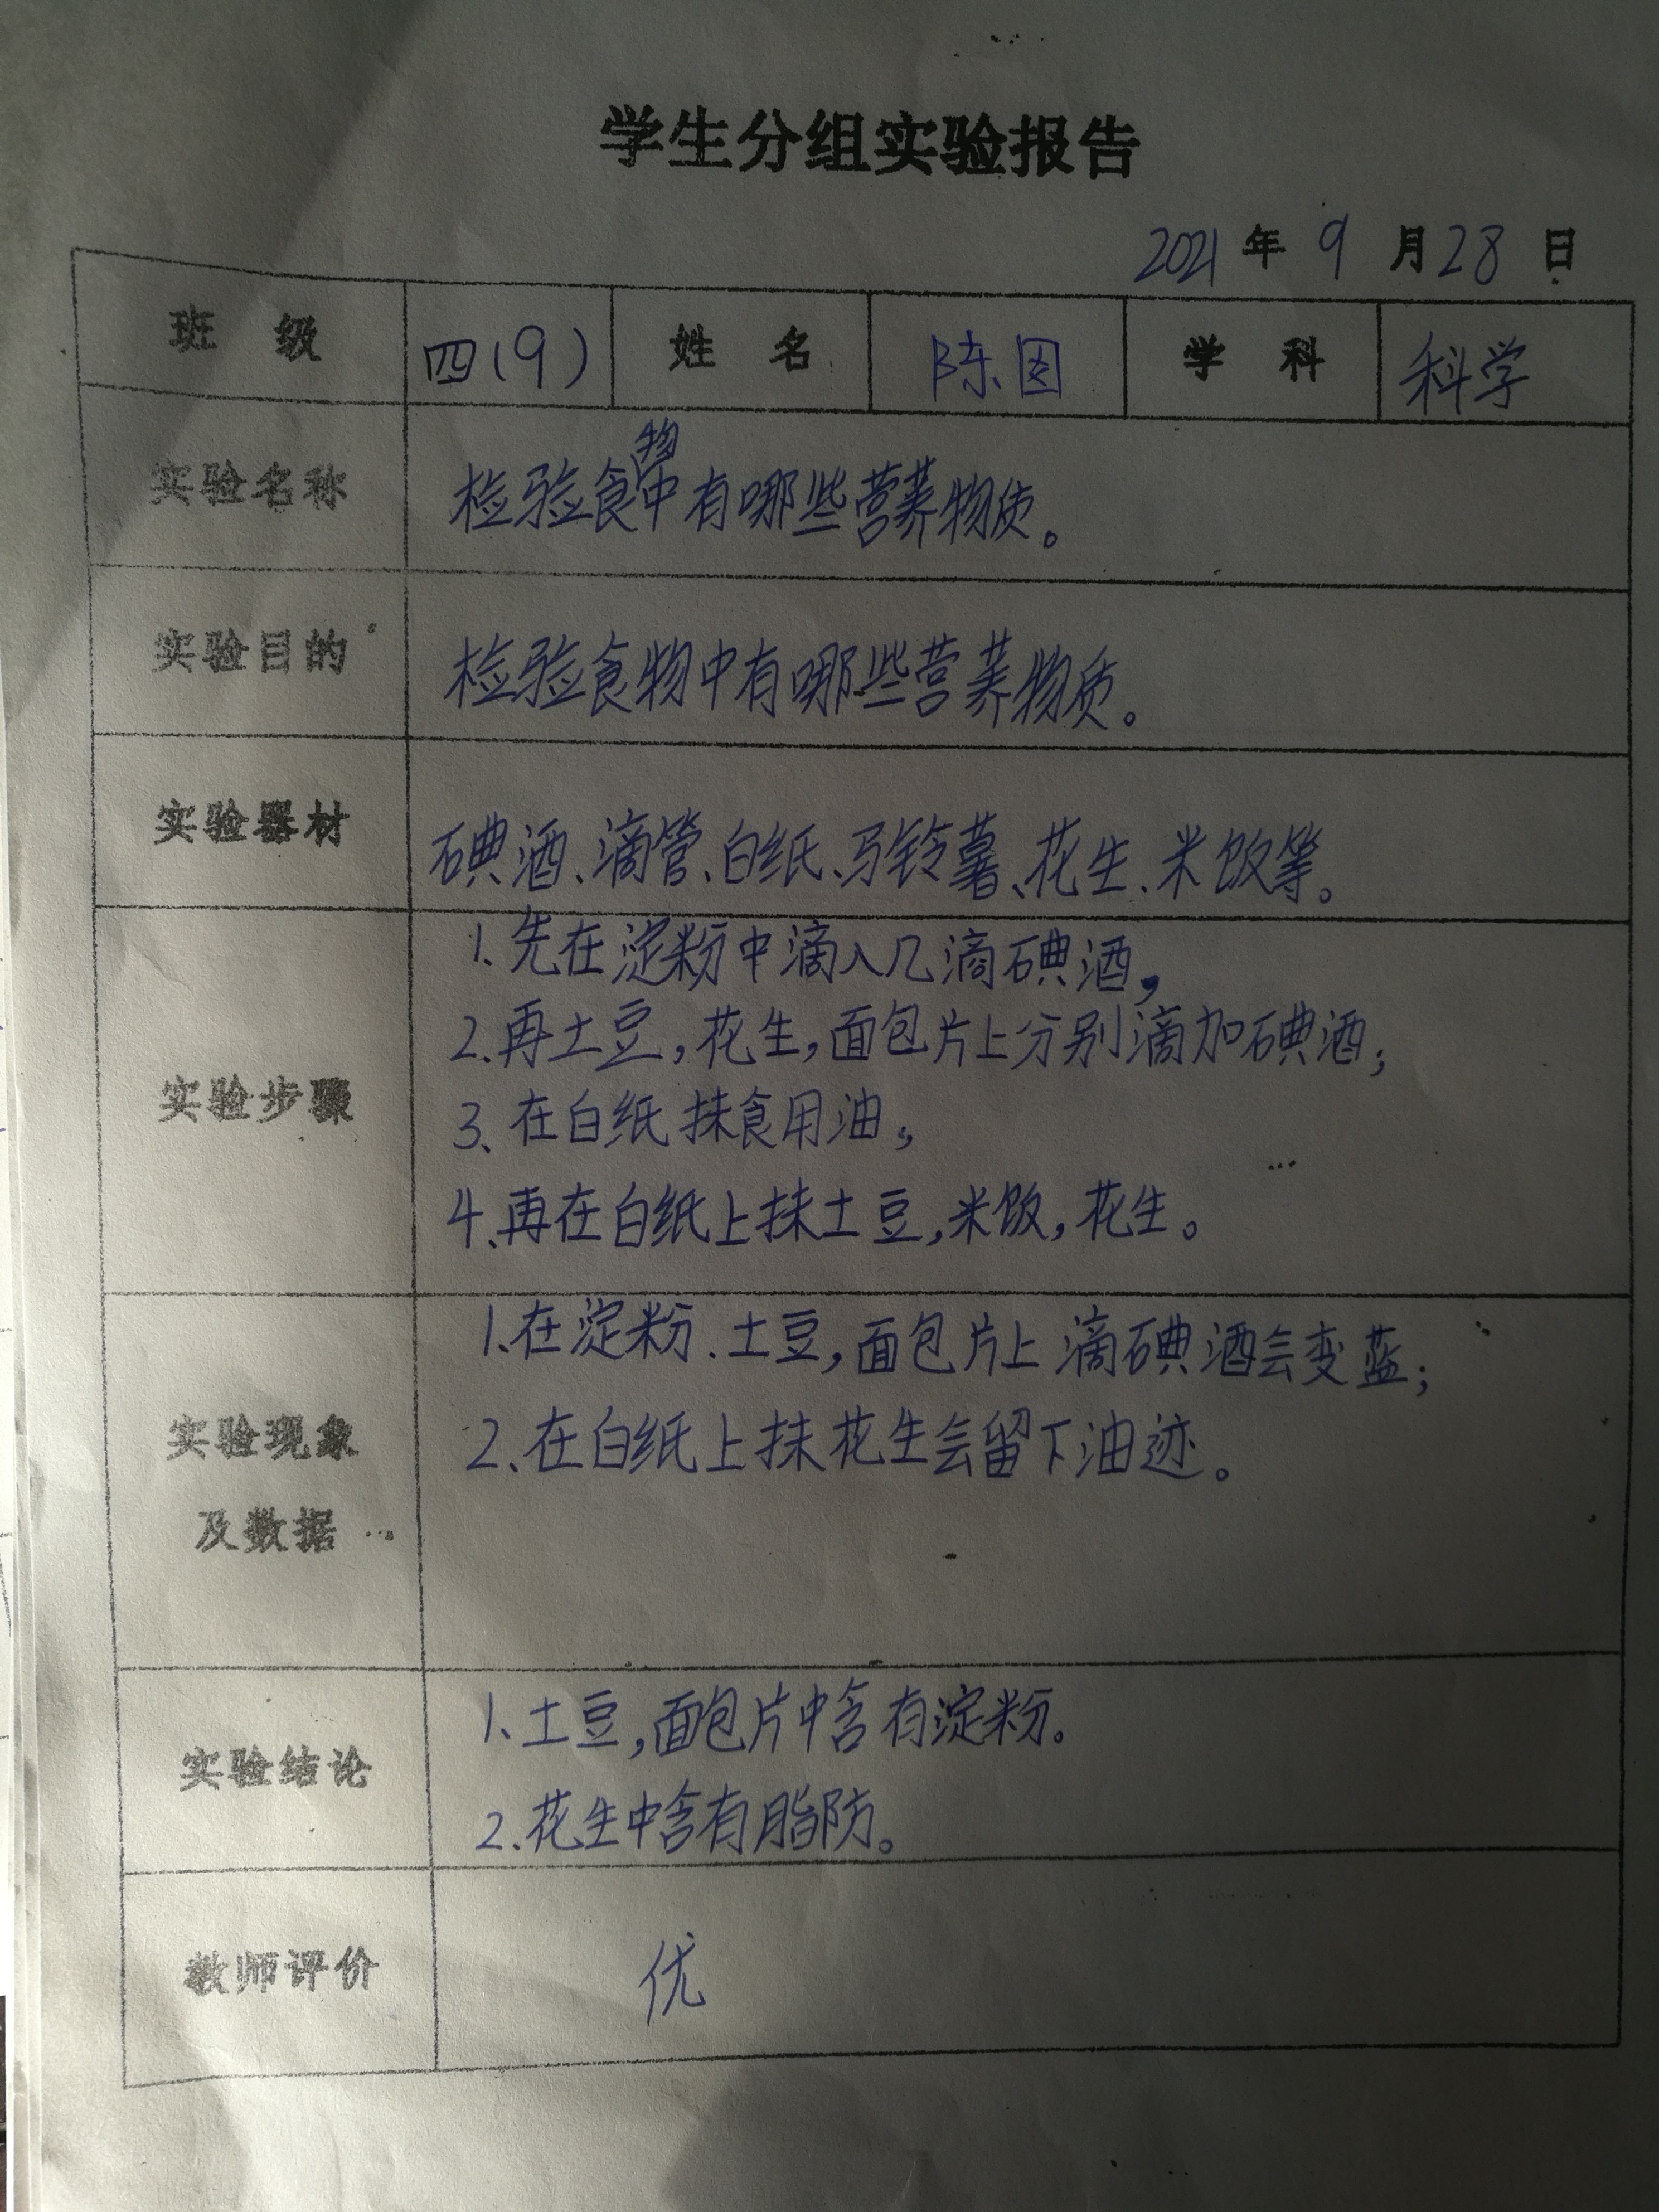 学生分组实验报告
2021年9月28日
班级 四(9) 姓名 陈图 学科 科学
实验名称 检验食物中有哪些营养物质。
实验目的 检验食物中有哪些营养物质。
实验器材 碘酒、滴管、白纸、马铃薯、花生、米饭等。
1.先在淀粉中滴入几滴碘酒,
2.再土豆,花生,面包片上分别滴加碘酒;
实验步骤
3、在白纸抹食用油,
4、再在白纸上抹土豆,米饭,花生。
1.在淀粉.土豆,面包片上滴碘酒会变蓝;
实验现象 2、在白纸上抹花生会留下油迹。
及数据
1、土豆,面包片中含有淀粉.
实验结论
2.花生中含有脂防。
教师评价 优